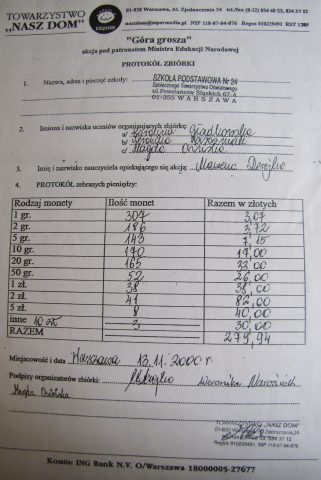 TOWARZYSTWO
„NASZ DOM"
01-830 Warszawa, Al. Zjednoczenia 34 tel/fax (0-22) 834 60 53, 834 37 12
naszdom@supermedia.pl NIP 118-07-84-876 Regon 010229491 RST 1289
"Góra grosza"
akcja pod patronatem Ministra Edukacji Narodowej
PROTOKÓŁ ZBIÓRKI
1. Nazwa, adres i pieczęć szkoły:
SZKOŁA PODSTAWOWA Nr 24
Społecznego Towarzystwa Oświatowego
ul. Powstańców Śląskich 67-A
01-355 WARSZAWA
2. Imiona i nazwiska uczniów organizujących zbiórkę: a/ Karolina
b/ Weronika
c/ Magda
3. Imię i nazwisko nauczyciela opiekującego się akcją: Marzena
4. PROTOKÓŁ zebranych pieniędzy:
Rodzaj monety Ilość monet Razem w złotych
1 gr. 307 3,07
2 gr. 186 3,72
5 gr. 143 7,15
10 gr. 170 17,00
20 gr. 165 33,00
50 gr. 52 26,00
1 zł. 38 38,00
2 zł. 41 82,00
5 zł. 8 40,00
inne 10 zł 3 30,00
RAZEM 279,94
Miejscowość i data Warszawa 13.11.2000 r.
Podpisy organizatorów zbiórki: Weronika
Magda
TOWARZYSTWO „NASZ DOM"
Konto: ING Bank N.V. O/Warszawa 18000005-27677